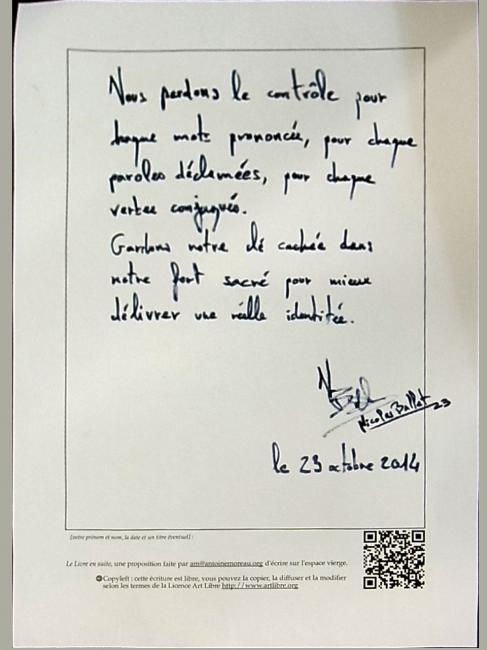 Nous perdons le contrôle pour
chaque mots prononcée, pour chaque
paroles déclamées, pour chaque
verbes conjugués.
Gardons notre clé cachée dans
notre fort sacré pour mieux
délivrer une réelle identitée.
Nicolas Ballet
23
le 23 octobre 2014
[votre prénom et nom, la date et un titre éventuel] :
Le Livre en suite, une proposition faite par am@antoinemoreau.org d'écrire sur l'espace vierge.
Copyleft : cette écriture est libre, vous pouvez la copier, la diffuser et la modifier
selon les termes de la Licence Art Libre http://www.artlibre.org